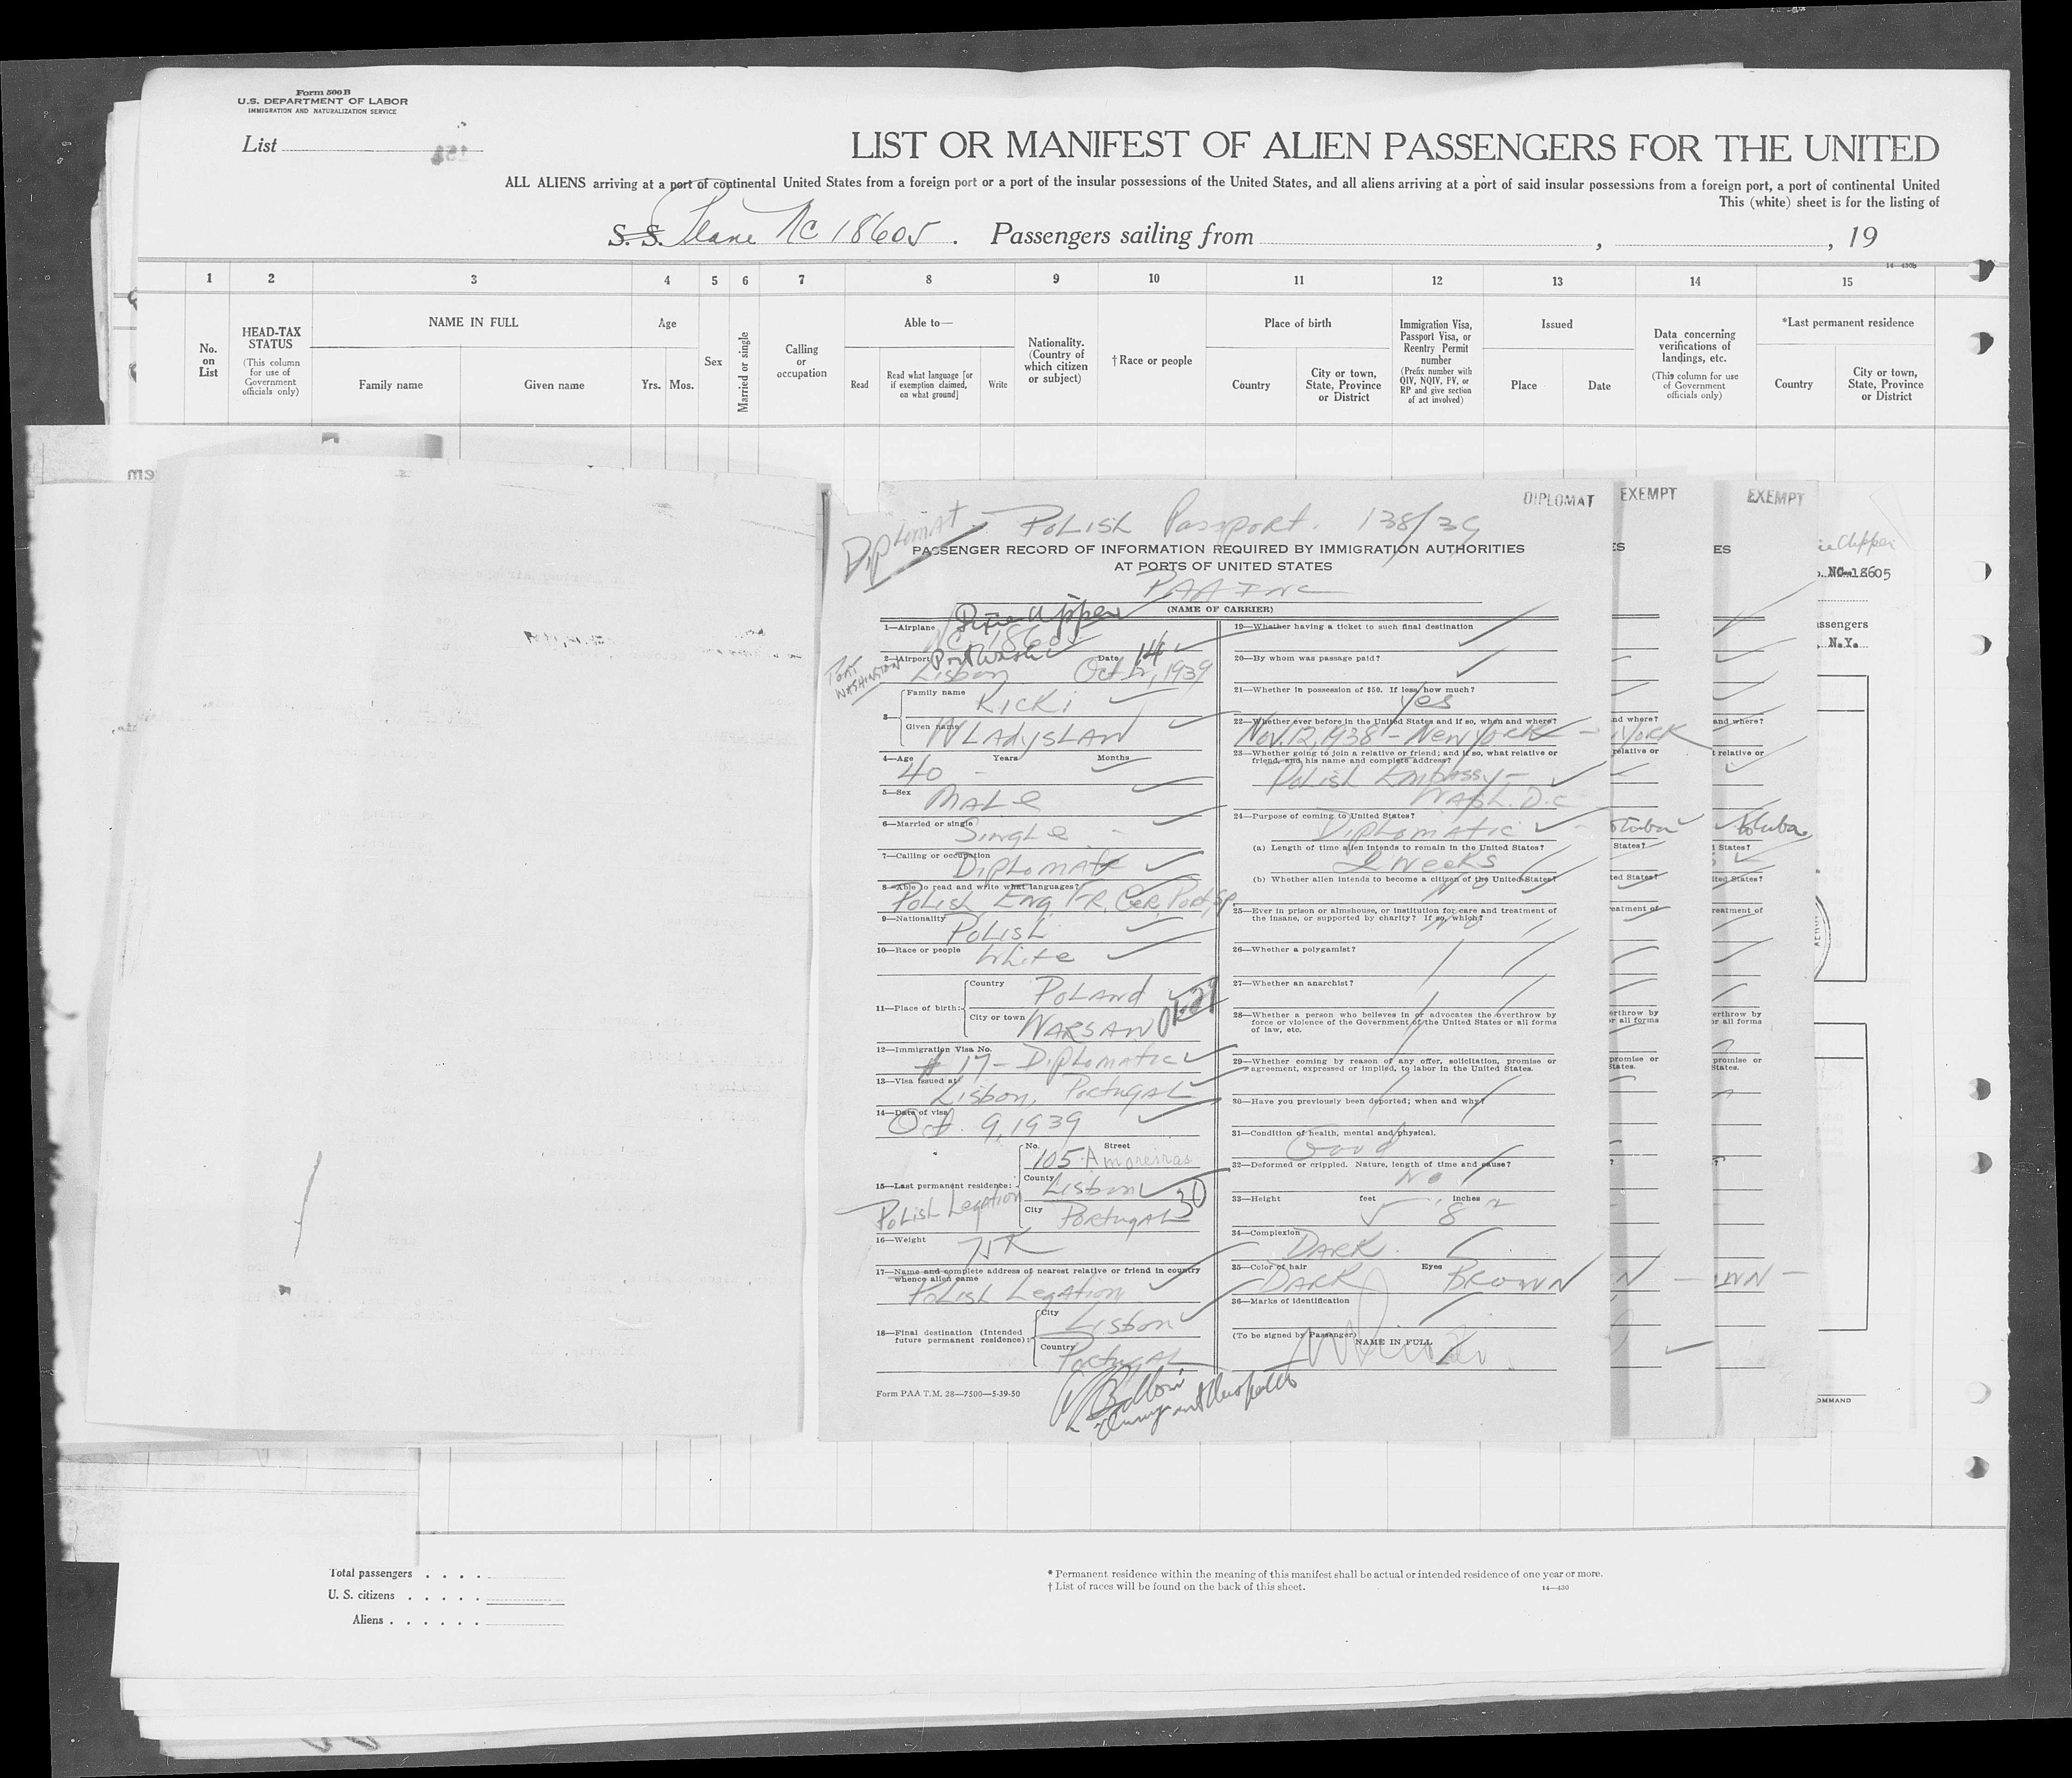 Form 500 B
U.S. DEPARTMENT OF LABOR
IMMIGRATION AND NATURALIZATION SERVICE
List
LIST OR MANIFEST OF ALIEN PASSENGERS FOR THE UNITED
ALL ALIENS arriving at a port of continental United States from a foreign port or a port of the insular possessions of the United States, and all aliens arriving at a port of said insular possessions from a foreign port, a port of continental United
This (white) sheet is for the listing of
S. S. Plane NC 18605. Passengers sailing from , , 19
14—430b
1 2 3 4 5 6 7 8 9 10 11 12 13 14 15
No. on List
HEAD-TAX STATUS
(This column for use of Government officials only)
NAME IN FULL
Family name Given name
Age
Yrs. Mos.
Sex
Married or single
Calling or occupation
Able to—
Read
Read what language [or if exemption claimed, on what ground]
Write
Nationality. (Country of which citizen or subject)
† Race or people
Place of birth
Country
City or town, State, Province or District
Immigration Visa, Passport Visa, or Reentry Permit number
(Prefix number with QIV, NQIV, PV, or RP and give section of act involved)
Issued
Place Date
Data concerning verifications of landings, etc.
(This column for use of Government officials only)
*Last permanent residence
Country
City or town, State, Province or District
DIPLOMAT
EXEMPT
EXEMPT
Diplomat - Polish Passport. 138/39
PASSENGER RECORD OF INFORMATION REQUIRED BY IMMIGRATION AUTHORITIES
AT PORTS OF UNITED STATES
PAA Inc
(NAME OF CARRIER)
1—Airplane Dixie Clipper
NC 18605
2—Airport Port Wash Date 14
Port Washington
Lisbon Oct 12, 1939
3— Family name Kicki
Given name Wladyslaw
4—Age Years Months
40 -
5—Sex Male
6—Married or single Single
7—Calling or occupation
Diplomat
8—Able to read and write what languages?
Polish Eng, Fr, Ger, Port, Sp.
9—Nationality Polish
10—Race or people White
11—Place of birth: Country Poland
City or town Warsaw
12—Immigration Visa No.
# 17 - Diplomatic
13—Visa issued at
Lisbon, Portugal
14—Date of visa
Oct. 9, 1939
15—Last permanent residence:
No. Street
105 Amoreiras
County Lisbon
City Portugal
Polish Legation
30
16—Weight 75 K
17—Name and complete address of nearest relative or friend in country whence alien came
Polish Legation
18—Final destination (Intended future permanent residence):
City Lisbon
Country Portugal
Form PAA T.M. 28—7500—5-39-50
19—Whether having a ticket to such final destination
20—By whom was passage paid?
21—Whether in possession of $50. If less, how much?
Yes
22—Whether ever before in the United States and if so, when and where?
Nov. 12, 1938 - New York
23—Whether going to join a relative or friend; and if so, what relative or friend, and his name and complete address?
Polish Embassy -
Wash. D.C.
24—Purpose of coming to United States?
Diplomatic
(a) Length of time alien intends to remain in the United States?
2 weeks
(b) Whether alien intends to become a citizen of the United States?
No
25—Ever in prison or almshouse, or institution for care and treatment of the insane, or supported by charity? If so, which?
No
26—Whether a polygamist?
27—Whether an anarchist?
28—Whether a person who believes in or advocates the overthrow by force or violence of the Government of the United States or all forms of law, etc.
29—Whether coming by reason of any offer, solicitation, promise or agreement, expressed or implied, to labor in the United States.
30—Have you previously been deported; when and why?
31—Condition of health, mental and physical.
Good
32—Deformed or crippled. Nature, length of time and cause?
No
33—Height feet 5 inches 8
34—Complexion Dark
35—Color of hair Dark Eyes Brown
36—Marks of identification
(To be signed by Passenger)
NAME IN FULL
NC-18605
N.Y.
* Permanent residence within the meaning of this manifest shall be actual or intended residence of one year or more.
† List of races will be found on the back of this sheet.
14—430
Total passengers
U. S. citizens
Aliens